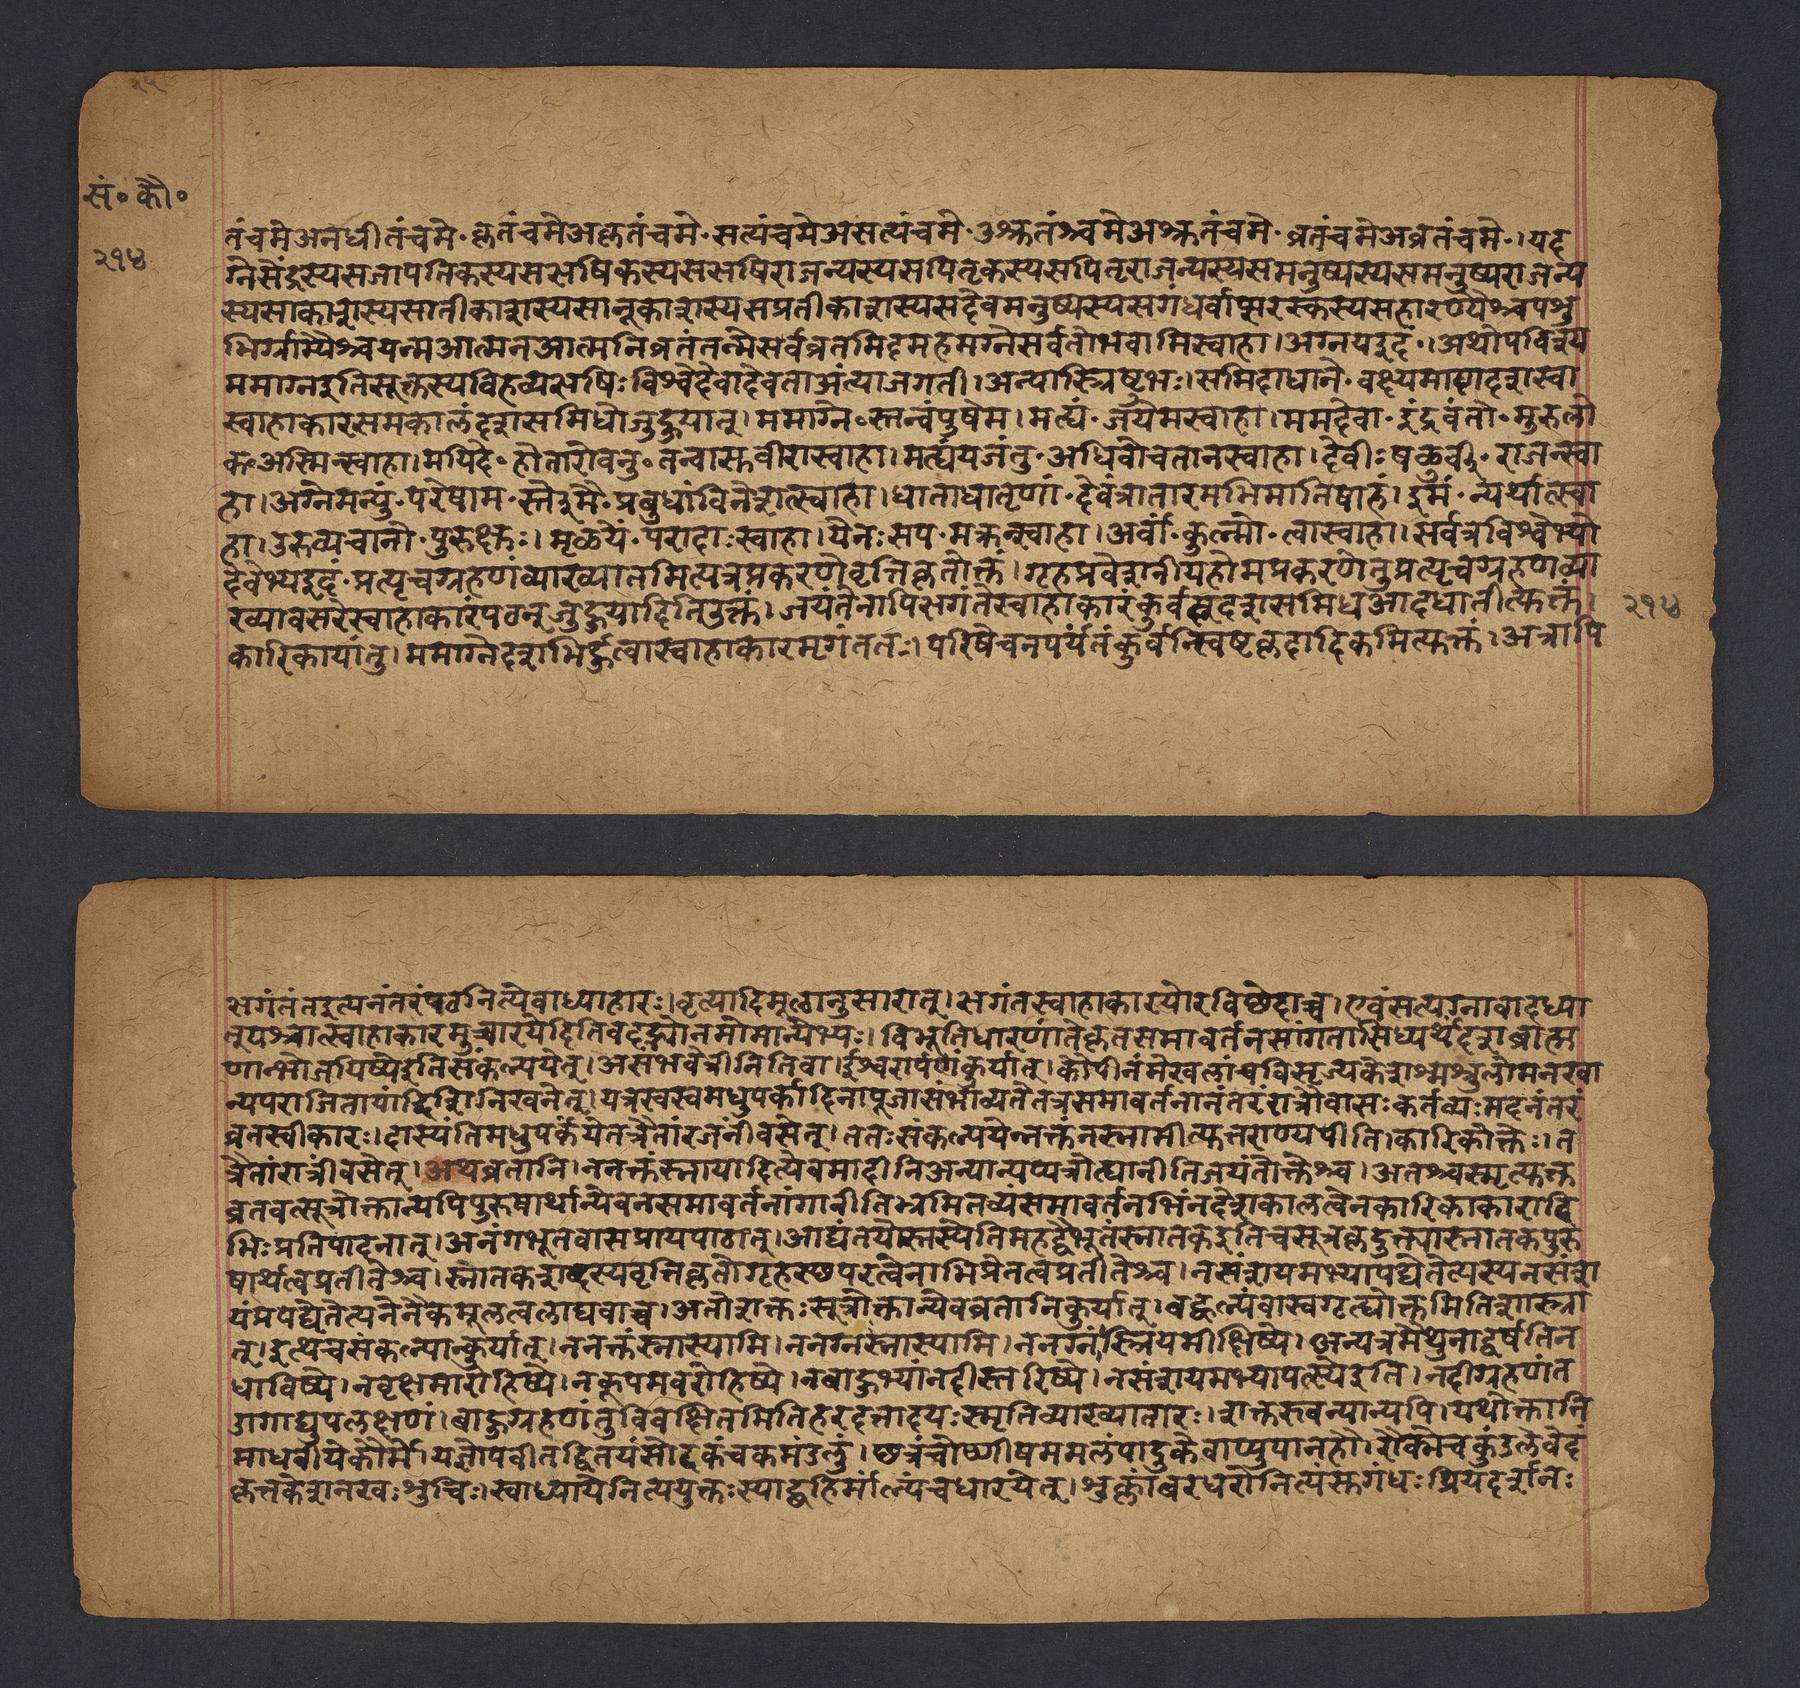 २५
सं॰ कौ॰
२१४
तंचमेअनधीतंचमे॰कृतंचमेअकृतंचमे॰सत्यंचमेअसत्यंचमे॰श्रुतंचमेअश्रुतंचमे॰व्रतंचमेअव्रतंचमे॰।यद
ग्नेसेंद्रस्यसप्रजापतिकस्यसऋषिकस्यसऋषिराजन्यस्यसपितृकस्यसपितृराजन्यस्यसमनुष्यस्यसमनुष्यराजन्य
स्यसाकाशस्यसातीकाशस्यसानूकाशस्यसप्रतीकाशस्यसदेवमनुष्यस्यसगंधर्वाप्सरस्कस्यसहारण्यैश्चपशु
भिर्ग्राम्यैश्चयन्मआत्मनआत्मनिव्रतंतन्मेसर्वव्रतमिदमहमग्नेसर्वतोभवामिस्वाहा।अग्नयइदं॰।अथोपविश्य
ममाग्नइतिसूक्तस्यविहव्यऋषिःविश्वेदेवादेवताअंत्याजगती।अन्यास्त्रिष्टुभः।समिदाधाने॰वक्ष्यमाणदशस्वा
स्वाहाकारसमकालंदशसमिधोजुहुयात्।ममाग्ने॰स्तन्वंपुषेम।मह्यं॰जयेमस्वाहा।ममदेवा॰इंद्रवंतो॰मुरुलो
कः॰अस्मिन्स्वाहा।मयिदे॰होतारोवनु॰तन्वासुवीरास्वाहा।मह्यंयजंतु॰अधिवोचतानस्वाहा।देवीःषळुर्वी॰राजन्स्वा
हा।अग्नेमन्युं॰परेषाम॰स्तेइमे॰प्रबुधांविनेशत्स्वाहा।धाताधातॄणां॰देवंत्रातारमभिमातिषाहं।इमं॰न्यर्थात्स्वा
हा।उरुव्यचानो॰पुरुक्षुः।मृळयें॰परादाःस्वाहा।येनःसप॰मक्रन्स्वाहा।अर्वां॰कुल्मो॰त्वास्वाहा।सर्वत्रविश्वेभ्यो
देवेभ्यइदं॰प्रत्यृचग्रहणंव्याख्यातमित्यत्रप्रकरणेवृत्तिकृतोक्तं।गृहप्रवेशनीयहोमप्रकरणेतुप्रत्यृचग्रहणव्या
ख्यावसरेस्वाहाकारंपठन्जुहुयादितिउक्तं।जयंतेनापिऋगंतेस्वाहाकारंकुर्वन्दशसमिधआदधातीत्युक्तं। २१४
कारिकायांतु।ममाग्नेदशभिर्हुत्वास्वाहाकारमृगंततः।परिषेचनपर्यंतंकुर्वन्स्विष्टकृदादिकमित्युक्तं।अत्रापि
ऋगंतंतइत्यनंतरंपठनित्येवाध्याहारः।वृत्यादिमूलानुसारात्।ऋगंतस्वाहाकारयोरविछेदाच्च।एवंसत्यग्नावादध्या
त्पश्चात्स्वाहाकारमुच्चारयेदितिवदद्भ्योनमोमान्येभ्यः।विभूतिधारणांतेकृतसमावर्तनसांगतासिध्यर्थंदशब्राह्म
णान्भोजयिष्यइतिसंकल्पयेत्।असंभवेत्रीनितिवा।ईश्वरार्पणंकुर्यात्।कौपीनंमेखलांचविसृज्यकेशश्मश्रुलोमनखा
न्यपराजितायांदिशिनिखनेत्।यत्रस्वस्वमधुपर्कादिनापूजासंभाव्यतेतत्रसमावर्तनानंतरंरात्रौवासःकर्तव्यःमदनंतरं
व्रतस्वीकारः।दास्यंतिमधुपर्कंयेतत्रैतांरजनींवसेत्।ततःसंकल्पयेन्नक्तंनस्नामीत्युत्तराण्यपीति।कारिकोक्तेः।त
त्रैतांरात्रींवसेत्।अथव्रतानि।ननक्तंस्नायादित्येवमादीनिअन्यान्यप्यत्रोह्यानीतिजयंतोक्तेश्च।अतश्चस्मृत्युक्त
व्रतवत्सूत्रोक्तान्यपिपुरुषार्थान्येवनसमावर्तनांगानीतिभ्रमितव्यंसमावर्तनभिंनदेशकालत्वेनकारिकाकारादि
भिःप्रतिपादनात्।अनंगभूतवासप्रायपाठात्।आद्यंतयोस्तस्येतिमहद्वैभूतंस्नातकइतिचसूत्रकृदुक्त्यास्नातकपुरु
षार्थत्वप्रतीतेश्च।स्नातकशब्दस्यवृत्तिकृतोगृहस्छपरत्वेनाभिप्रेतत्वप्रतीतेश्च।नसंशयमभ्यापद्येतेत्यस्यनसंश
यंप्रपद्येतेत्यनेनैकमूलत्वलाघवाच्च।अतोशक्तःसूत्रोक्तान्येवव्रतानिकुर्यात्।बह्वल्पंवास्वगृह्योक्तमितिशास्त्रा
त्।इत्थंचसंकल्पान्कुर्यात्।ननक्तंस्नास्यामि।ननग्नःस्नास्यामि।ननग्नांस्त्रियमीक्षिष्ये।अन्यत्रमैथुनाद्वर्षतिन
धाविष्ये।नवृक्षमारोहिष्ये।नकूपमवरोहिष्ये।नबाहुभ्यांनदींस्तरिष्ये।नसंशयमभ्यापत्स्येइति।नदीग्रहणंत
डागाद्युपलक्षणं।बाहुग्रहणंतुविवक्षितमितिहरदत्तादयःस्मृतिव्याख्यातारः।शक्तस्त्वन्यान्यपि।यथोक्तानि
माधवीयेकौर्मे।यज्ञोपवीतद्वितयंसोदकंचकमंडलुं।छत्रंचोष्णीषममलंपादुकेचाप्युपानहौ।रौक्मेचकुंडलेवेदं
कृत्तकेशनखःशुचिः।स्वाध्यायेनित्ययुक्तःस्याद्बहिर्माल्यंचधारयेत्।शुक्लांबरधरोनित्यंसुगंधःप्रियदर्शनः